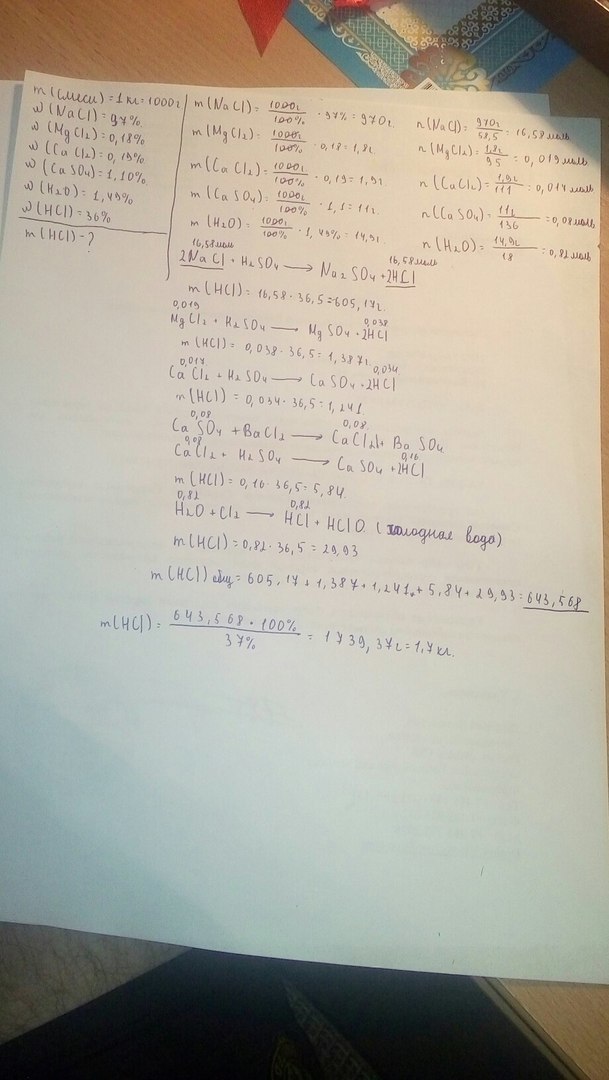 m(смеси) = 1 кг = 1000 г
w(NaCl) = 97%
w(MgCl₂) = 0,18%
w(CaCl₂) = 0,19%
w(CaSO₄) = 1,10%
w(H₂O) = 1,49%
w(HCl) = 36%
m(HCl) - ?
m(NaCl) = 1000г/100% · 97% = 970г.
m(MgCl₂) = 1000г/100% · 0,18 = 1,8г.
m(CaCl₂) = 1000г/100% · 0,19 = 1,9г.
m(CaSO₄) = 1000г/100% · 1,1 = 11г
m(H₂O) = 1000г/100% · 1,49% = 14,9г.
n(NaCl) = 970г/58,5 = 16,58 моль
n(MgCl₂) = 1,8г/95 = 0,019 моль
n(CaCl₂) = 1,9г/111 = 0,017 моль
n(CaSO₄) = 11г/136 = 0,08 моль
n(H₂O) = 14,9г/18 = 0,82 моль
16,58 моль 16,58 моль
2NaCl + H₂SO₄ → Na₂SO₄ + 2HCl
m(HCl) = 16,58 · 36,5 = 605,17г.
0,019 0,038
MgCl₂ + H₂SO₄ → MgSO₄ + 2HCl
m(HCl) = 0,038 · 36,5 = 1,387г.
0,017 0,034
CaCl₂ + H₂SO₄ → CaSO₄ + 2HCl
m(HCl) = 0,034 · 36,5 = 1,241.
0,08 0,08.
CaSO₄ + BaCl₂ → CaCl₂ + BaSO₄
0,08 0,16
CaCl₂ + H₂SO₄ → CaSO₄ + 2HCl
m(HCl) = 0,16 · 36,5 = 5,84.
0,82 0,82
H₂O + Cl₂ → HCl + HClO. (холодная вода)
m(HCl) = 0,82 · 36,5 = 29,93
m(HCl) общ = 605,17 + 1,387 + 1,241 + 5,84 + 29,93 = 643,568
m(HCl) = 643,568 · 100%/37% = 1739,37г = 1,7 кг.